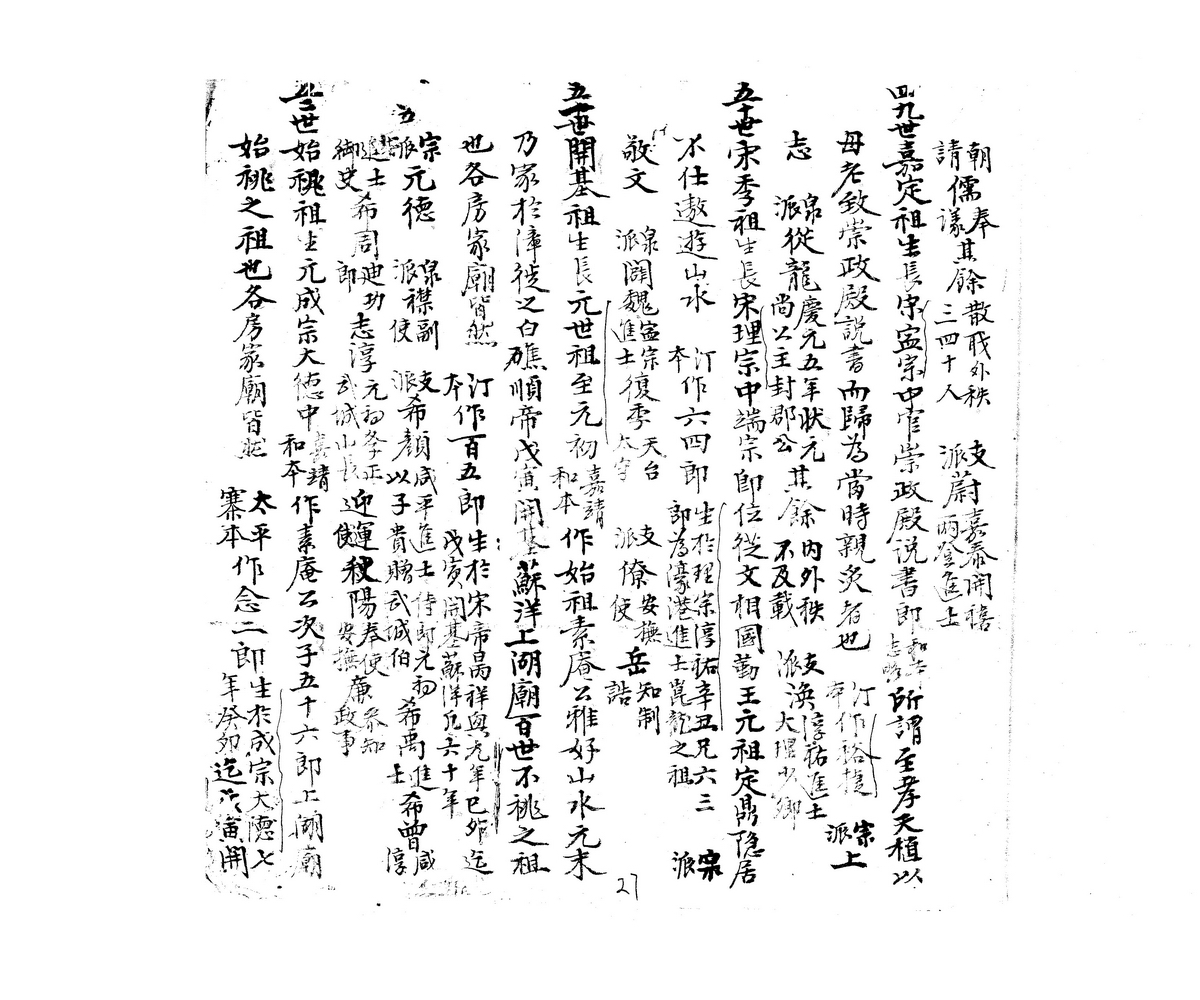 朝請儒奉議其餘散職外秩三四十人 支派蔚嘉泰開禧兩登進士
四九世嘉定祖生長宋寧宗中官崇政殿説書即 所謂至孝天植以
母老致崇政殿説書而歸為當時親炙者也 汀本作裕提 宗派上
志 泉派從龍慶元五年狀元尚公主封郡公 其餘內外秩不及載 支派渙淳祐進士大理少卿
五十世宋季祖生長宋理宗中端宗即位從文相國勤王元祖定鼎隐居
不仕遨遊山水 汀本作六四郎 生於理宗淳祐辛丑兄六三郎為濠港進士嵩龍之祖 宗派
敬文 泉派闢魏寧宗進士復季天台太守 支派僚安撫使岳知制誥
五十一世開基祖生長元世祖至元初 嘉靖和本作始祖素庵公雅好山水元末
乃家於漳徙之白礁順帝戊寅開基蘇洋上湖廟百世不祧之祖
也各房家廟皆然 汀本作百五郎 生於宋帝昺祥興元年己卯迄戊寅開基蘇洋凡六十年
宗派元德 泉派襟副使 支派希顏咸平進士侍郎元初以子貴贈武城伯 希禹進士希曾咸淳
進士御史希周迪功郎志淳元初孝正武城山長迎運使秋陽奉使安撫廉參知政事
五二世始祧祖生元成宗大德中 嘉靖和本作素庵公次子五十六郎上湖廟
始祧之祖也各房家廟皆然 太平寨本作念二郎 生於成宗大德七年癸卯迄戊寅開
27